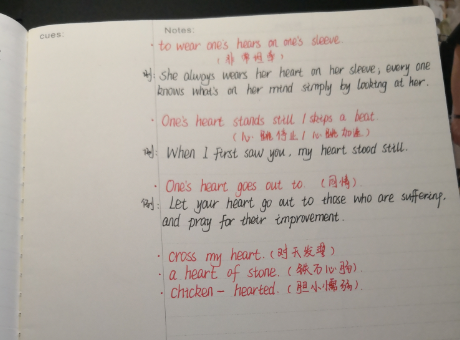 cues:
Notes:
· to wear one's hears on one's sleeve.
例: She always wears her heart on her sleeve, every one
knows what's on her mind simply by looking at her.
· One's heart stands still / skips a beat.
(心跳停止 / 心跳加速)
例: When I first saw you, my heart stood still.
· One's heart goes out to. (同情)
例: Let your heart go out to those who are suffering.
and pray for their improvement.
· cross my heart. (对天发誓)
· a heart of stone. (铁石心肠)
· chicken-hearted. (胆小懦弱)